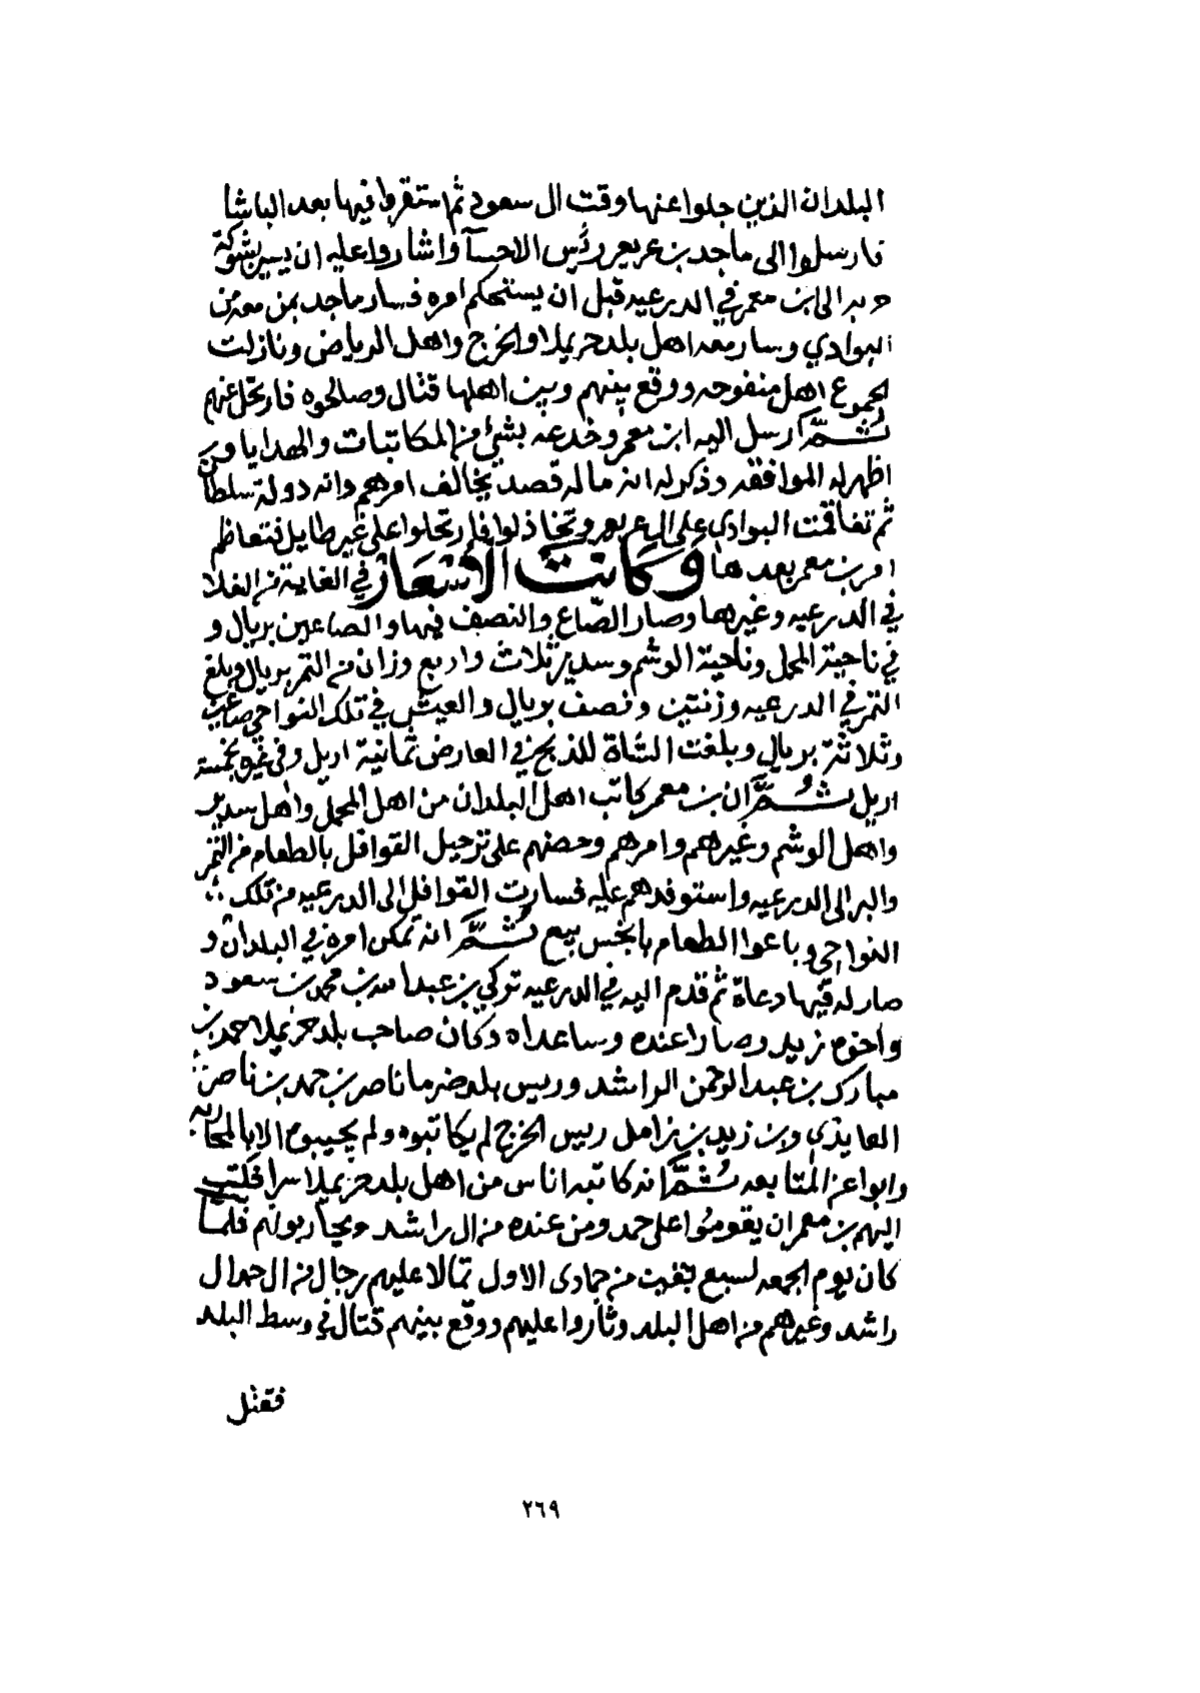 البلدان الذين جلوا عنها وقت ال سعود ثم استقروا فيها بعد الباشا
فارسلوا الى ماجد بن عريعر رئيس الاحسآ واشاروا عليه ان يسير بشوكة
حربه الى ابن معمر في الدرعيه قبل ان يستحكم امره فسار ماجد بمن معه من
البوادي وسار معه اهل بلد حريملا والخرج واهل الرياض ونازلت
الجموع اهل منفوحه ووقع بينهم وبين اهلها قتال وصالحوه فارتحل عنهم
ثُمَّ ارسل اليه ابن معمر وخدعه بشئ من المكاتبات والهدايا ومن
اظهر له الموافقه وذكر له انه ماله قصد يخالف امرهم وانه دولة سلطان
ثم تفاقمت البوادي على ال عريعر وتخاذلوا فارتحلوا على غير طايل فتعاظم
امر بن معمر بعدها وَكَانَت الأَسْعَار في الغاية من الغلا
في الدرعيه وغيرها وصار الصّاع والنصف فيها والصاعين بريال و
في ناحية المحمل وناحية الوشم وسدير ثلاث واربع وزان من التمر بريال وبلغ
التمر في الدرعيه وزنتين ونصف بريال والعيش في تلك النواحي صاعين
وثلاثة بريال وبلغت الشاة للذبح في العارض ثمانية اريل وفي غيره بخمسة
اريل ثُمَّ ان بن معمر كاتب اهل البلدان من اهل المحمل واهل سدير
واهل الوشم وغيرهم وامرهم وحضهم على ترحيل القوافل بالطعام من التمر
والبر الى الدرعيه واستوفدهم عليه فسارت القوافل الى الدرعيه من تلك
النواحي وباعوا الطعام بابخس بيع ثُمَّ انه تمكن امره في البلدان و
صار له فيها دعاة ثم قدم اليه في الدرعيه تركي بن عبدالله بن محمد بن سعود
واخوه زيد وصارا عنده وساعداه وكان صاحب بلد حريملا حمد بن
مبارك بن عبدالرحمن الراشد وريس بلد ضرما ناصر بن حمد بن ناصر
العايذي وبن زيد بن زامل ريس الخرج لم يكاتبوه ولم يجيبوه الا بالمحاربه
وابوا عن المتابعه ثُمَّ انه كاتبه اناس من اهل بلد حريملا سرا فكتب
اليهم بن معمر ان يقوموا على حمد ومن عنده من ال راشد ويحاربونهم فلما
كان يوم الجمعه لسبع بقيت من جمادى الاول تمالا عليهم رجال من ال حمد ال
راشد وغيرهم من اهل البلد وثاروا عليهم ووقع بينهم قتال في وسط البلد
فقتل
٢٦٩